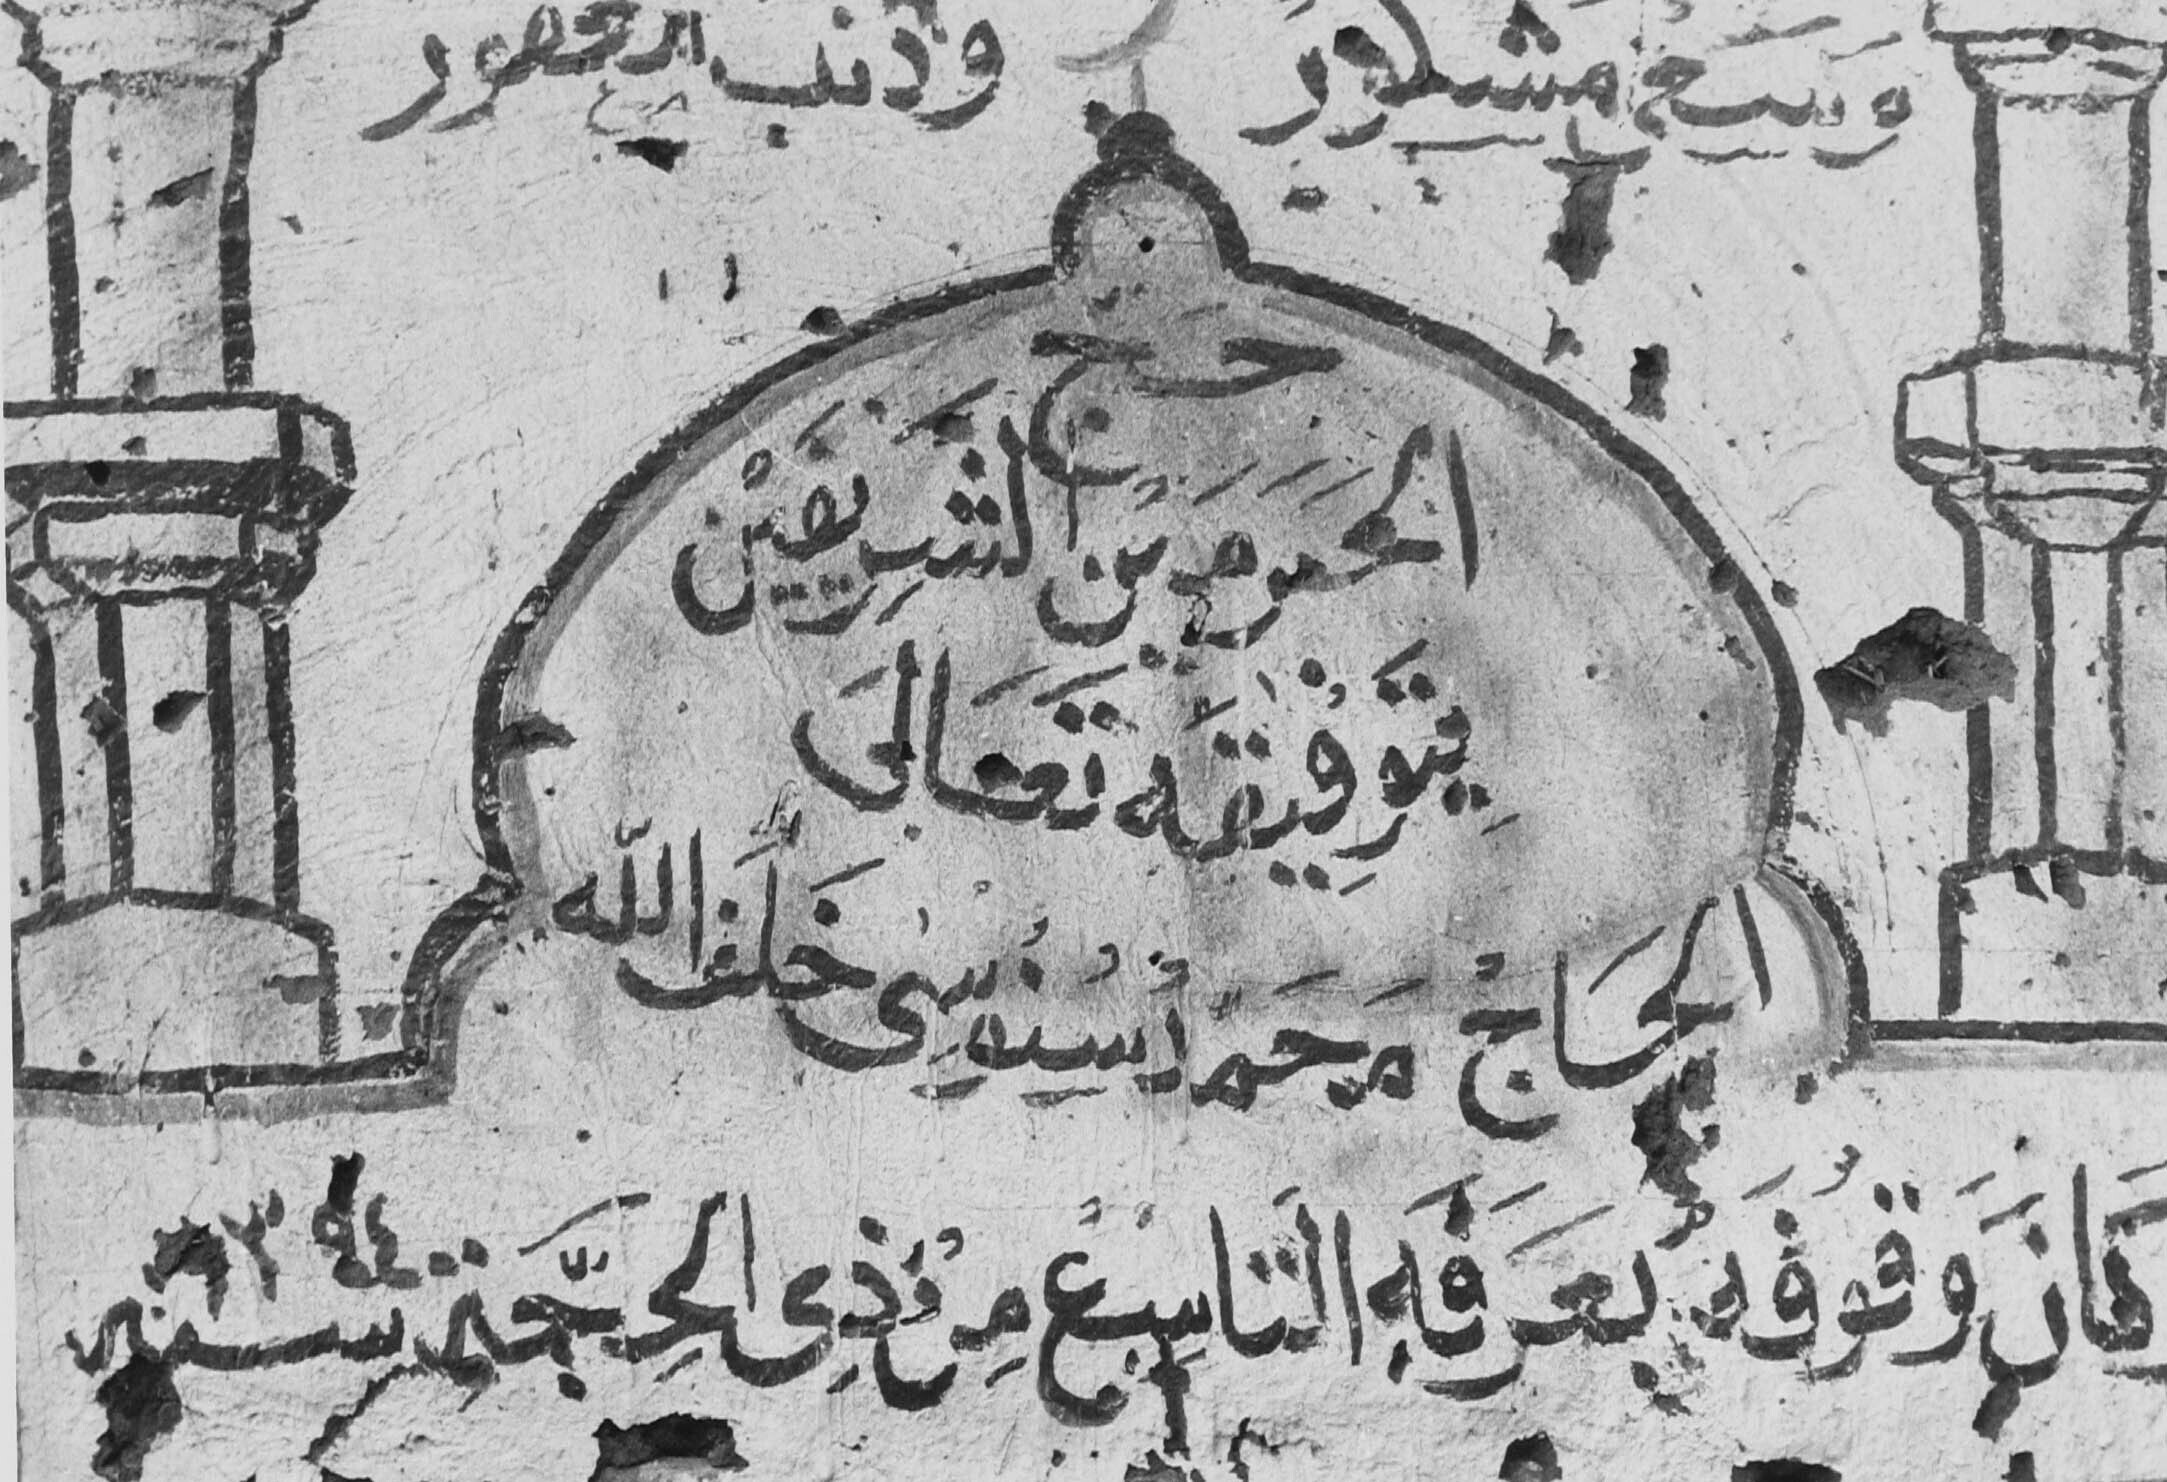 وسعى مشكور وذنب مغفور
حج
الْحَرَمَيْنِ الشَّرِيفَيْنْ
بِتَوْفِيقِهِ تَعَالَى
الْحَاجْ مَحَمَّدْ السُنُوسِى خَلَفْ اللّه
وَكَانَ وَقُوفُهُ بِعَرَفَه التَاسِعْ مِنْ ذِى الْحِجَّة سنة